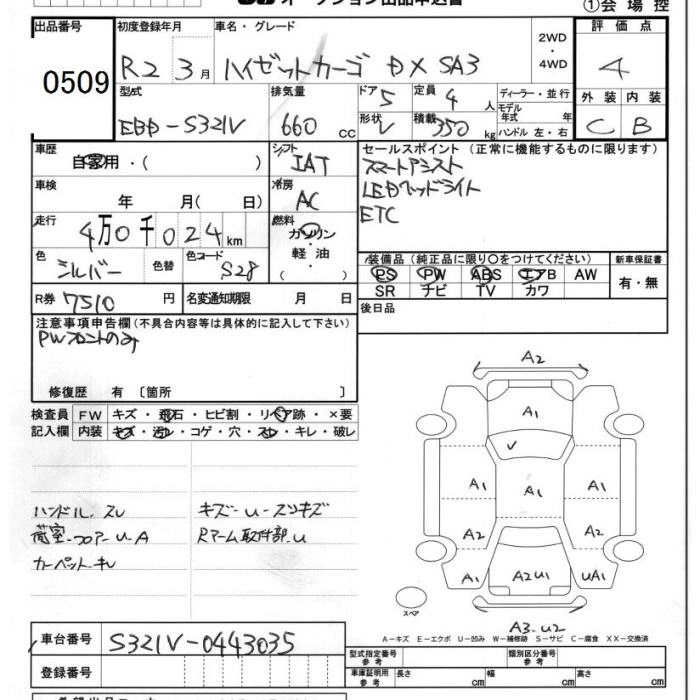 オークション出品申込書
①会場控
出品番号
0509
初度登録年月
R2 3月
車名・グレード
ハイゼットカーゴ DX SA3
2WD
・
4WD
評価点
4
型式
EBD-S321V
排気量
660 cc
ドア
5
定員
4人
形状
V
積載
350 kg
ディーラー・並行
モデル年式 年式
ハンドル 左・右
外装 内装
C B
車歴
自家用・( )
シフト
IAT
セールスポイント (正常に機能するものに限ります)
スマートアシスト
LEDヘッドライト
ETC
車検
年 月( 日)
冷房
AC
走行
4万0千024km
燃料
ガソリン
軽油・
( )
色
シルバー
色替
色コード
S28
装備品 (純正品に限り○をつけてください)
PS PW ABS エアB AW
SR ナビ TV カワ
新車保証書
有・無
R券 7510円
名変通知期限 月 日
後日品
注意事項申告欄(不具合内容等は具体的に記入して下さい)
PWフロントのみ
修復歴 有 〔箇所 〕
検査員
記入欄
FW キズ・飛石・ヒビ割・リペア跡・×要
内装 キズ・汚レ・コゲ・穴・スレ・キレ・破レ
ハンドル.スレ
荷室-フロアーU.A
カーペット.キレ
キズ-U-スリキズ
Rアーム取付部.U
A2
A1
A1
A1
A1
A2
A2
A1
A2U1
UA1
A3-U2
スペア
A-キズ E-エクボ U-凹み W-補修跡 S-サビ C-腐食 XX-交換済
車台番号 S321V-0443035
登録番号
型式指定番号
参考
類別区分番号
参考
車庫証明用
参考
長さ cm 幅 cm 高さ cm